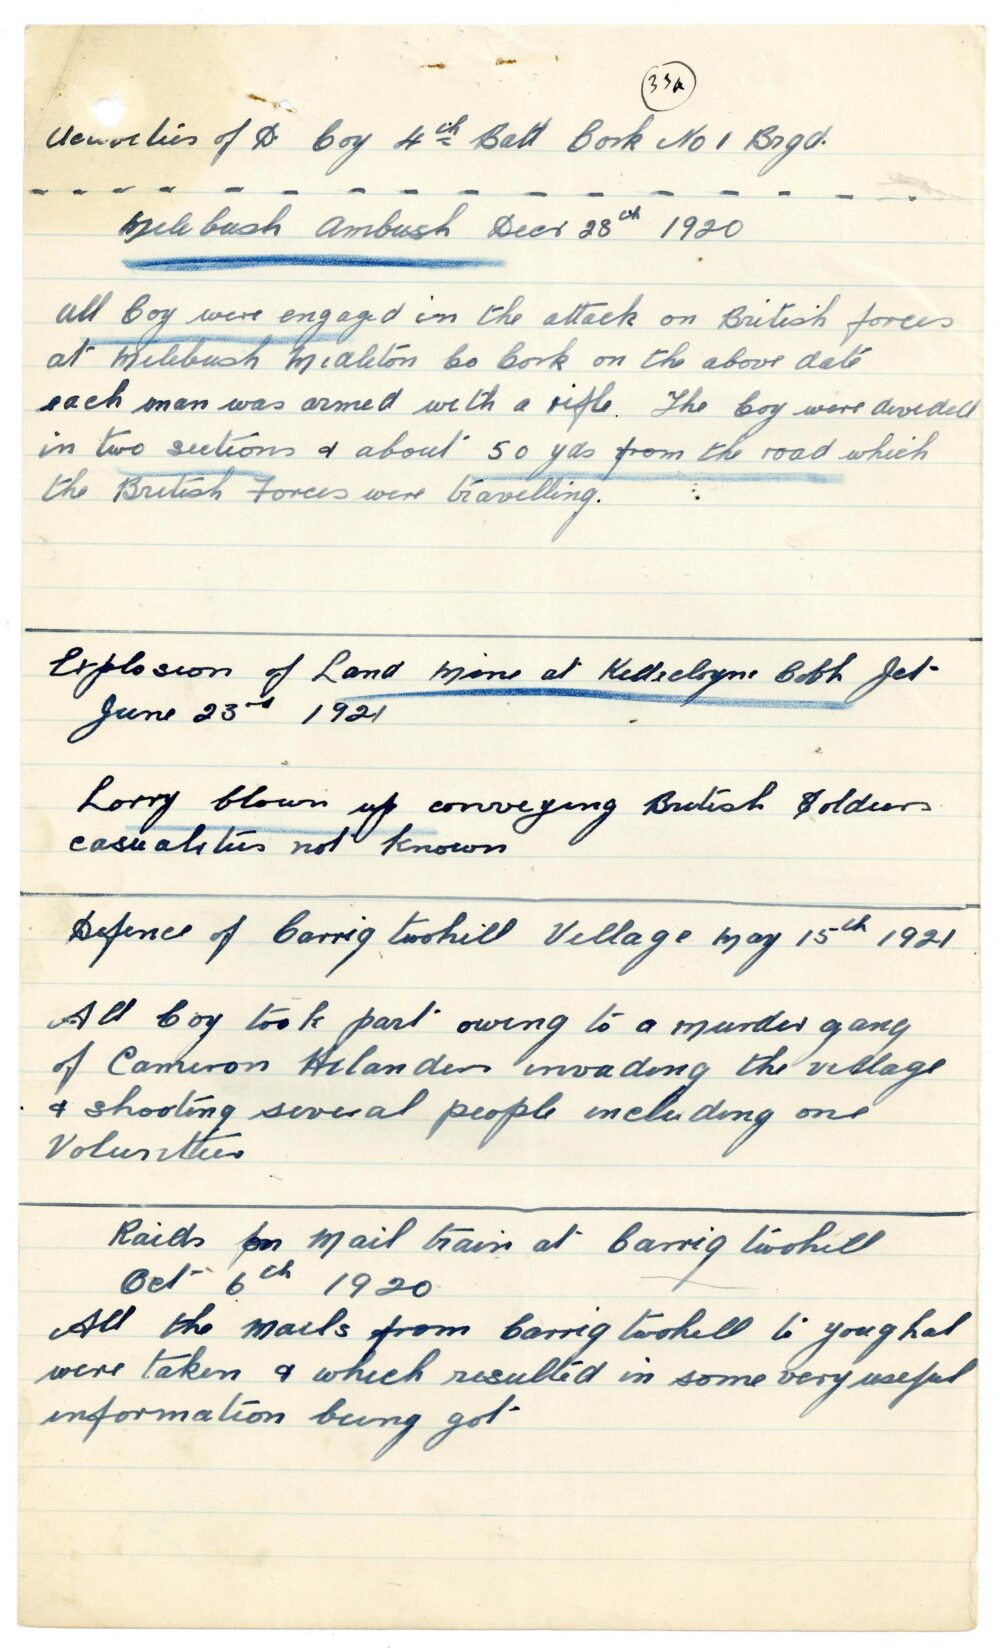 33A
Activities of D Coy 4th Batt Cork No 1 Brgd.
Milebush Ambush Decr 28th 1920
All Coy were engaged in the attack on British forces
at Milebush Midleton Co Cork on the above date
each man was armed with a rifle. The Coy were devided
in two sections & about 50 yds from the road which
the British Forces were travelling.
Explosion of Land Mine at Killeclogne Cobh Jct
June 23rd 1921
Lorry blown up conveying British Soldiers
casualities not known
Defence of Carrigtwohill Village May 15th 1921
All Coy took part owing to a murder gang
of Cameron Hilanders invading the village
& shooting several people including one
Volunteer
Raids on Mail train at Carrigtwohill
Oct 6th 1920
All the mails from Carrigtwohill to Youghal
were taken & which resulted in some very useful
information being got